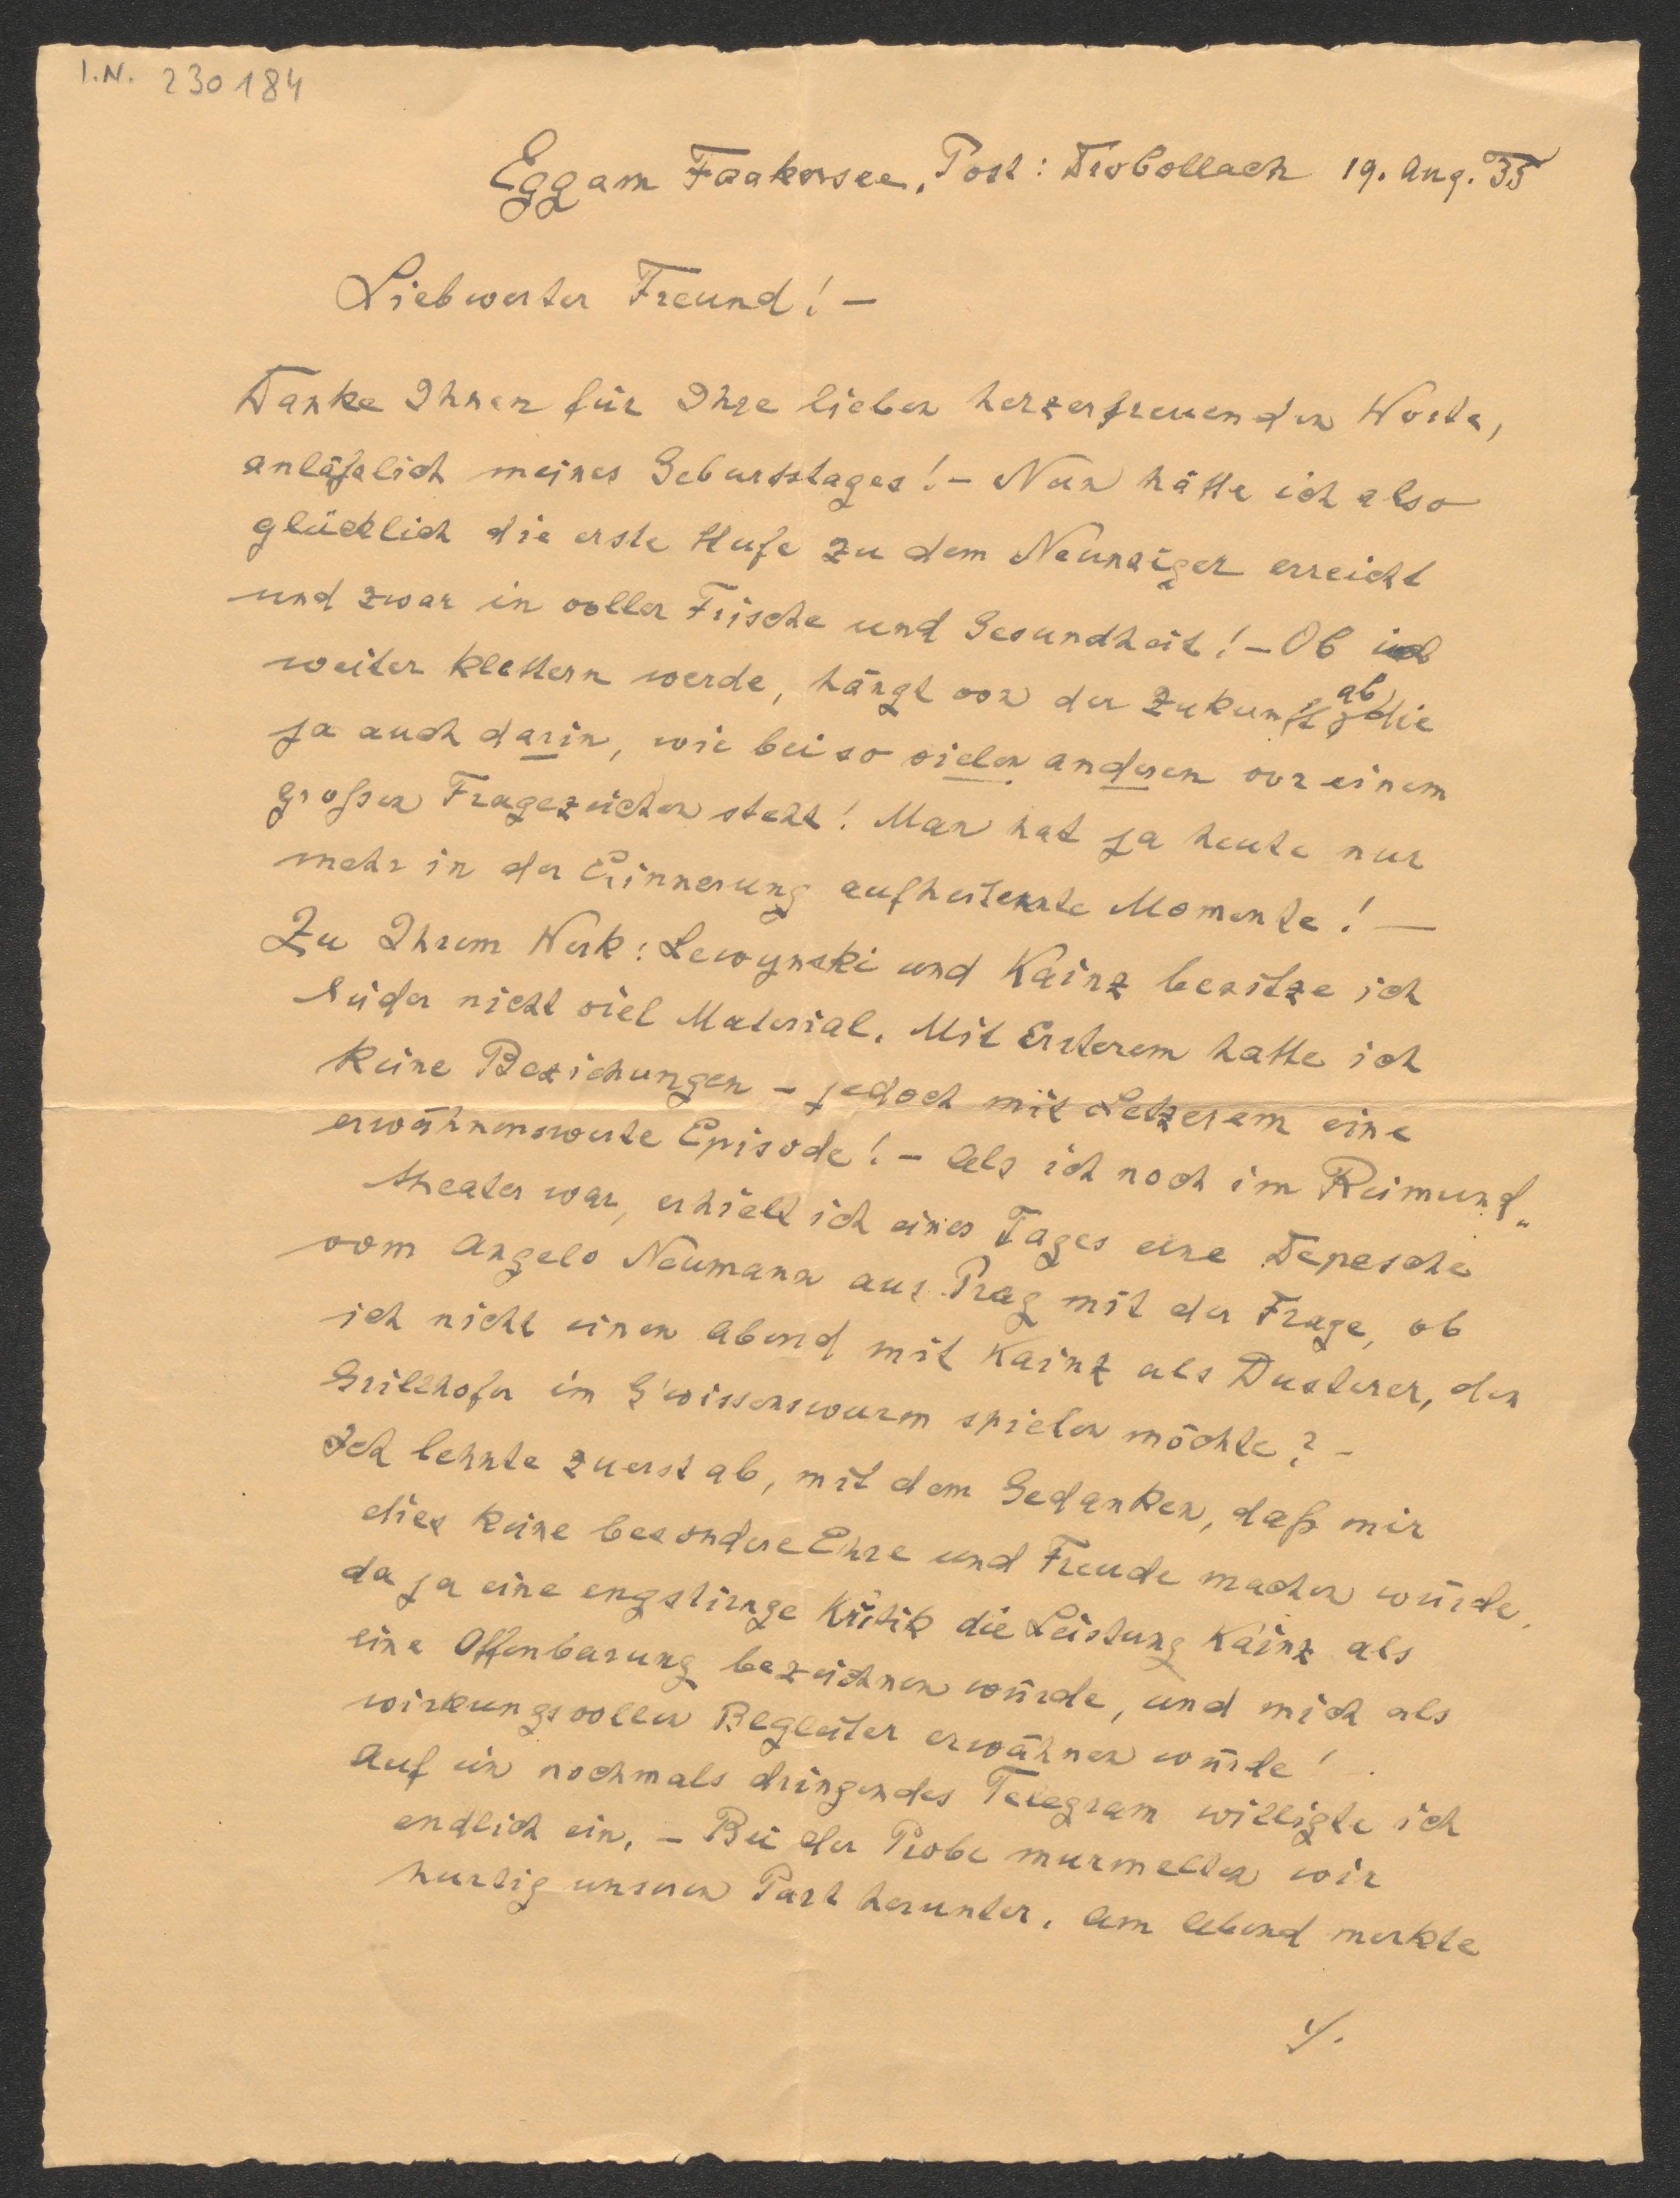 I.N. 230184
Egg am Faakersee, Post: Drobollach 19. Aug. 35
Liebwerter Freund! –
Danke Ihnen für Ihre lieben herzerfreuenden Worte,
anläßlich meines Geburtstages! – Nun hätte ich also
glücklich die erste Stufe zu dem Neunziger erreicht
und zwar in voller Frische und Gesundheit! – Ob ich
weiter klettern werde, hängt von der Zukunft ab, die
ja auch darin, wie bei so vielen anderen vor einem
großen Fragezeichen steht! Man hat ja heute nur
mehr in der Erinnerung aufheiternte Momente! –
Zu Ihrem Werk: Lewynski und Kainz besitze ich
leider nicht viel Material. Mit Ersterem hatte ich
keine Beziehungen – jedoch mit Letzerem eine
erwähnenswerte Episode! – Als ich noch im Reimund„
theater war, erhielt ich eines Tages eine Depesche
vom Angelo Neumann aus Prag mit der Frage, ob
ich nicht einen Abend mit Kainz als Dusterer, den
Grillhofer im G'wissenswurm spielen möchte? –
Ich lehnte zuerst ab, mit dem Gedanken, daß mir
dies keine besondere Ehre und Freude machen würde,
da ja eine engstirnge Kritik die Leistung Kainz als
eine Offenbarung bezeichnen würde, und mich als
wirkungsvollen Begleiter erwähnen würde!
Auf ein nochmals dringendes Telegram willigte ich
endlich ein. – Bei der Probe murmelten wir
hurtig unseren Part herunter. Am Abend merkte
./.